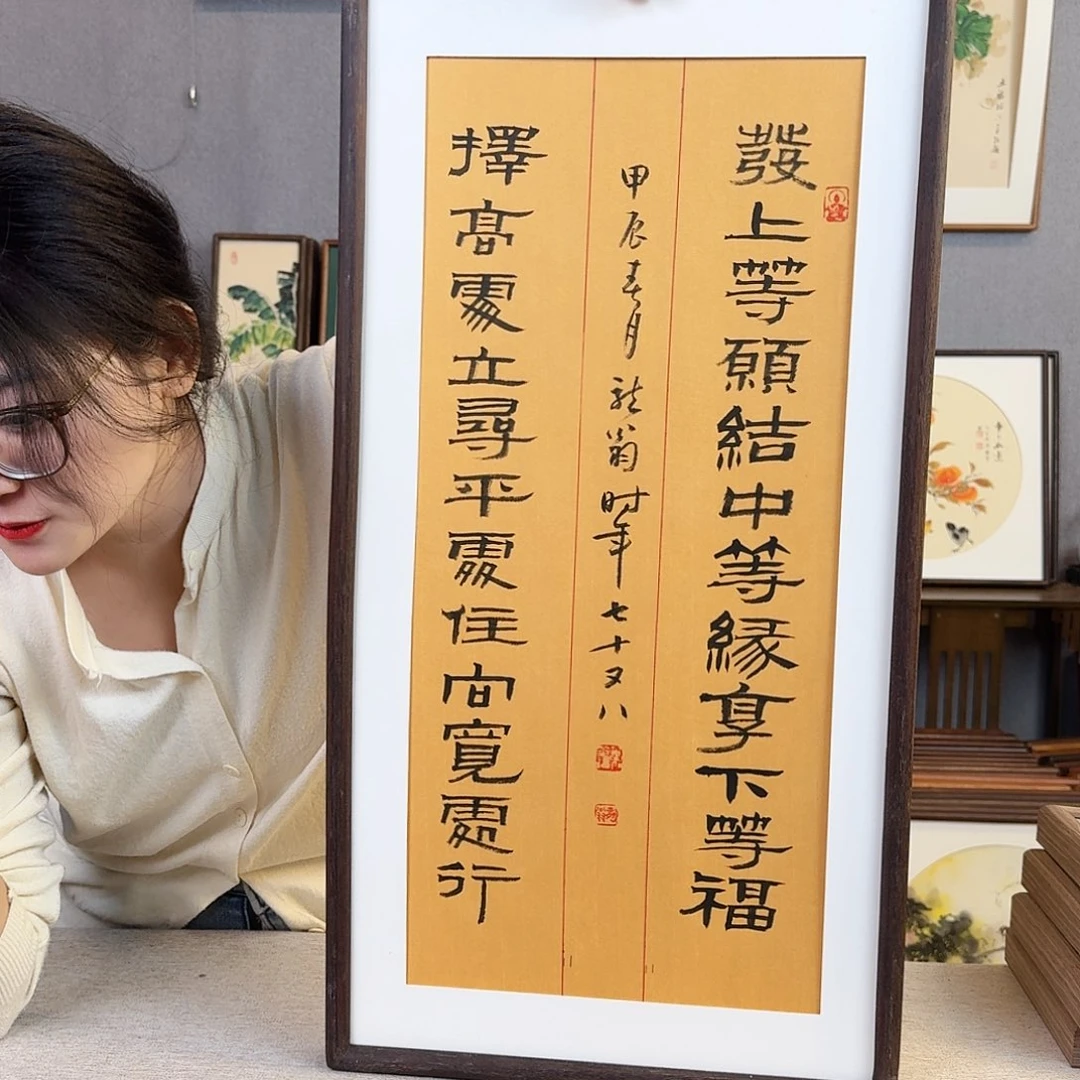 發上等願結中等緣享下等福
甲辰春月 龍翁時年七十又八
擇高處立尋平處住向寬處行